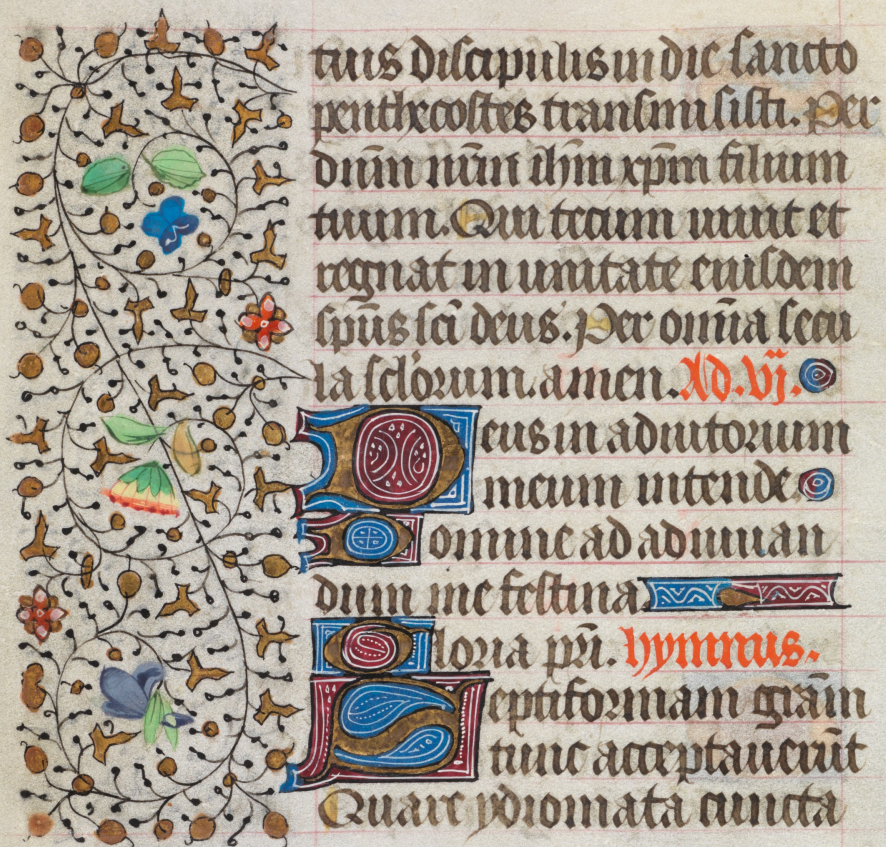 tuis discipulis in die sancto
penthecostes transmisisti. Per
dn̄m nr̄m ih̄m xp̄m filium
tuum. Qui tecum uiuit et
regnat in unitate eiusdem
sp̄us sc̄i deus. Per om̄ia secu
la sclōrum. amen. Ad. vij.
Deus in adiutorium
meum intende
Domine ad adiuuan
dum me festina
Gloria pr̄i. hymnus.
Septiformam grām
tunc acceptauerūt
Quare ydiomata cuncta